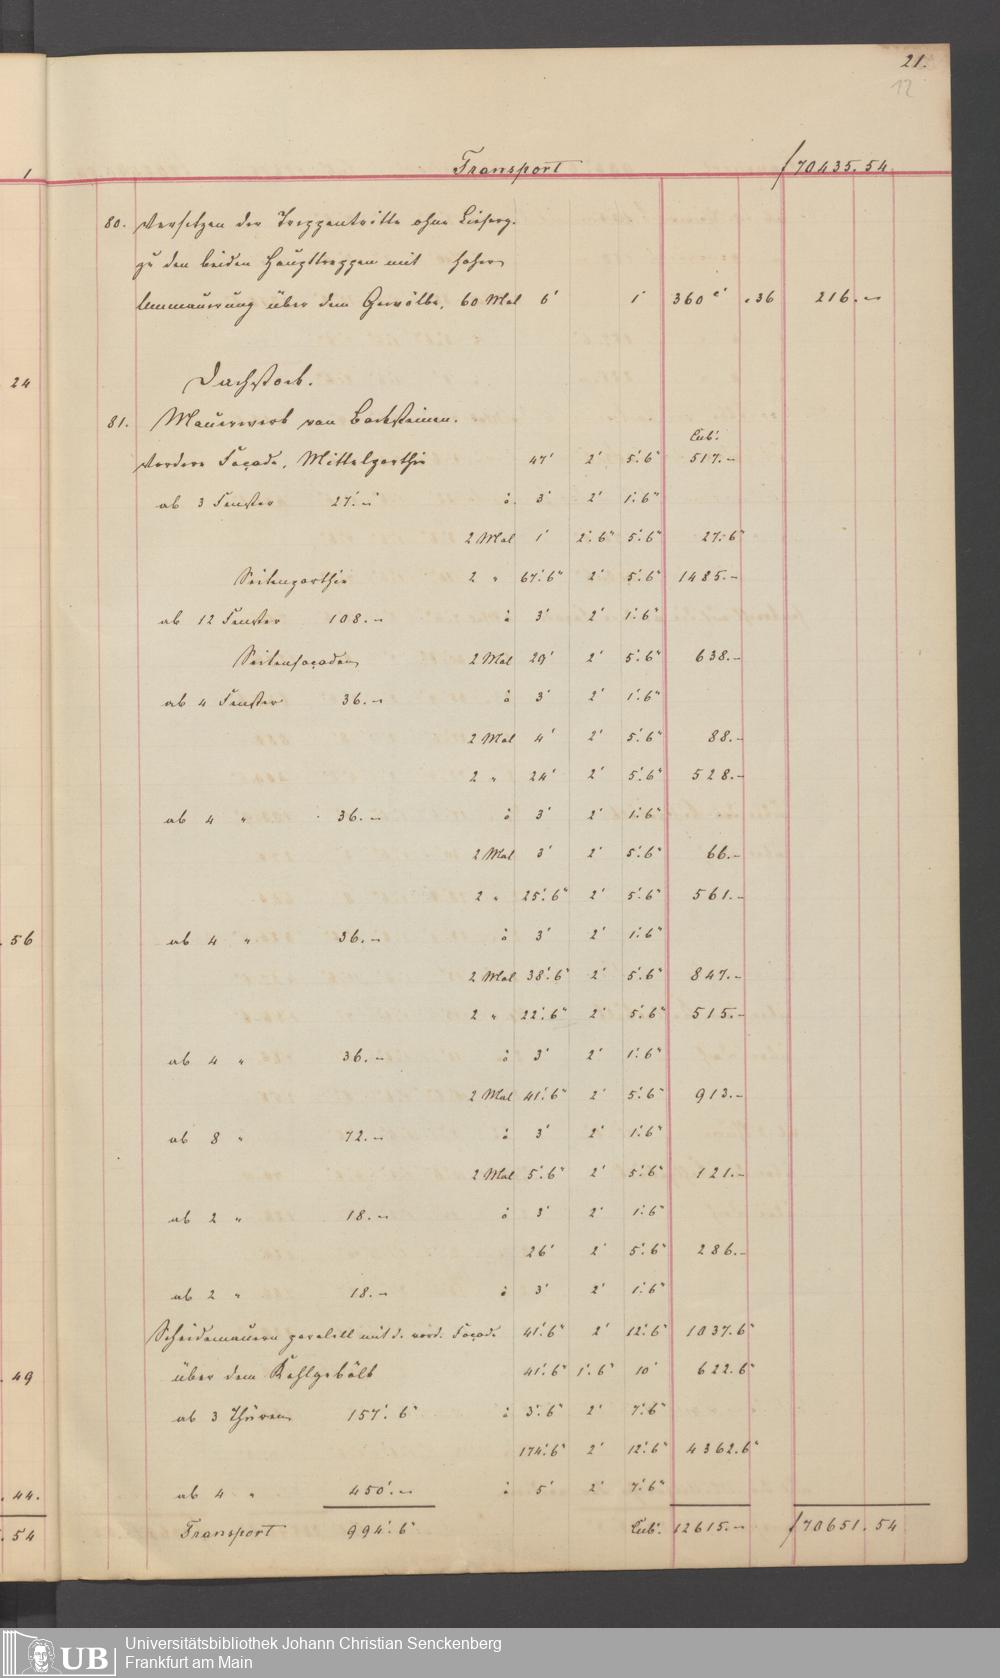 21.
12
Transport ƒ 70435.54
80. Versetzen der Treppentritte ohne Lieferg.
zu den beiden Haupttreppen mit hoher
Ummauerung über dem Gewölbe, 60 Mal 6' 1' 360 c' .36 216.–
Dachstock.
81. Mauerwerk von Backsteinen.
Cub'.
Vordere Façade, Mittelparthie 47' 2' 5'.6" 517.–
ab 3 Fenster 27'.– à 3' 2' 1'.6"
2 Mal 1' 2'.6" 5'.6" 27.6"
Seitenparthie 2 " 67'.6" 2' 5'.6" 1485.–
ab 12 Fenster 108.– à 3' 2' 1'.6"
Seitenfaçaden 2 Mal 29' 2' 5'.6" 638.–
ab 4 Fenster 36.– à 3' 2' 1'.6"
2 Mal 4' 2' 5'.6" 88.–
2 " 24' 2' 5'.6" 528.–
ab 4 " 36.– à 3' 2' 1'.6"
2 Mal 3' 2' 5'.6" 66.–
2 " 25'.6" 2' 5'.6" 561.–
ab 4 " 36.– à 3' 2' 1'.6"
2 Mal 38'.6" 2' 5'.6" 847.–
2 " 22'.6" 2' 5'.6" 515.–
ab 4 " 36.– à 3' 2' 1'.6"
2 Mal 41'.6" 2' 5'.6" 913.–
ab 8 " 72.– à 3' 2' 1'.6"
2 Mal 5'.6" 2' 5'.6" 121.–
ab 2 " 18.– à 3' 2' 1'.6"
26' 2' 5'.6" 286.–
ab 2 " 18.– à 3' 2' 1'.6"
Scheidemauern parallel mit d. vord. Façade 41'.6" 2' 12'.6" 1037.6"
über dem Kehlgebälk 41'.6" 1'.6" 10' 622.6"
ab 3 Thüren 157'.6" à 3'.6" 2' 7'.6"
174'.6" 2' 12'.6" 4362.6"
ab 4 " 450'.– à 5' 2' 7'.6"
Transport 994'.6" Cub'. 12615.– ƒ 70651.54
1
24
.56
.49
.44.
.54
UB
Universitätsbibliothek Johann Christian Senckenberg
Frankfurt am Main